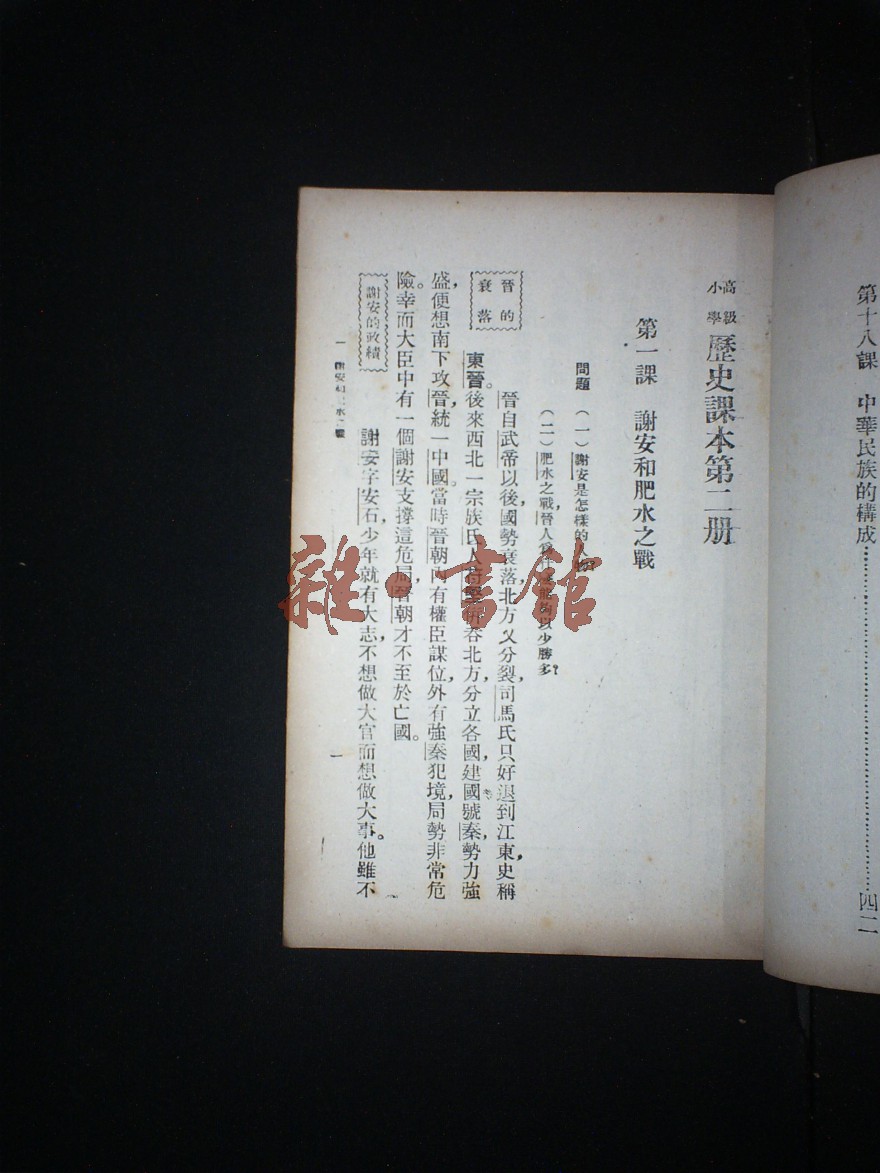 第十八課 中華民族的構成……四二
高級
小學
歷史課本第二册
第一課 謝安和肥水之戰
問題 (一)謝安是怎樣的 物?
(二)肥水之戰,晉人爲什 能夠以少勝多?
晉的
衰落
晉自武帝以後,國勢衰落,北方又分裂,司馬氏只好退到江東,史稱
東晉。後來西北一宗族氏人苻堅併吞北方分立各國,建國號秦,勢力強
盛,便想南下攻晉,統一中國。當時晉朝內有權臣謀位,外有強秦犯境,局勢非常危
險。幸而大臣中有一個謝安支撐這危局,晉朝才不至於亡國。
謝安的政績
謝安字安石,少年就有大志,不想做大官而想做大事。他雖不
一 謝安和 水之戰
一
雜·書館